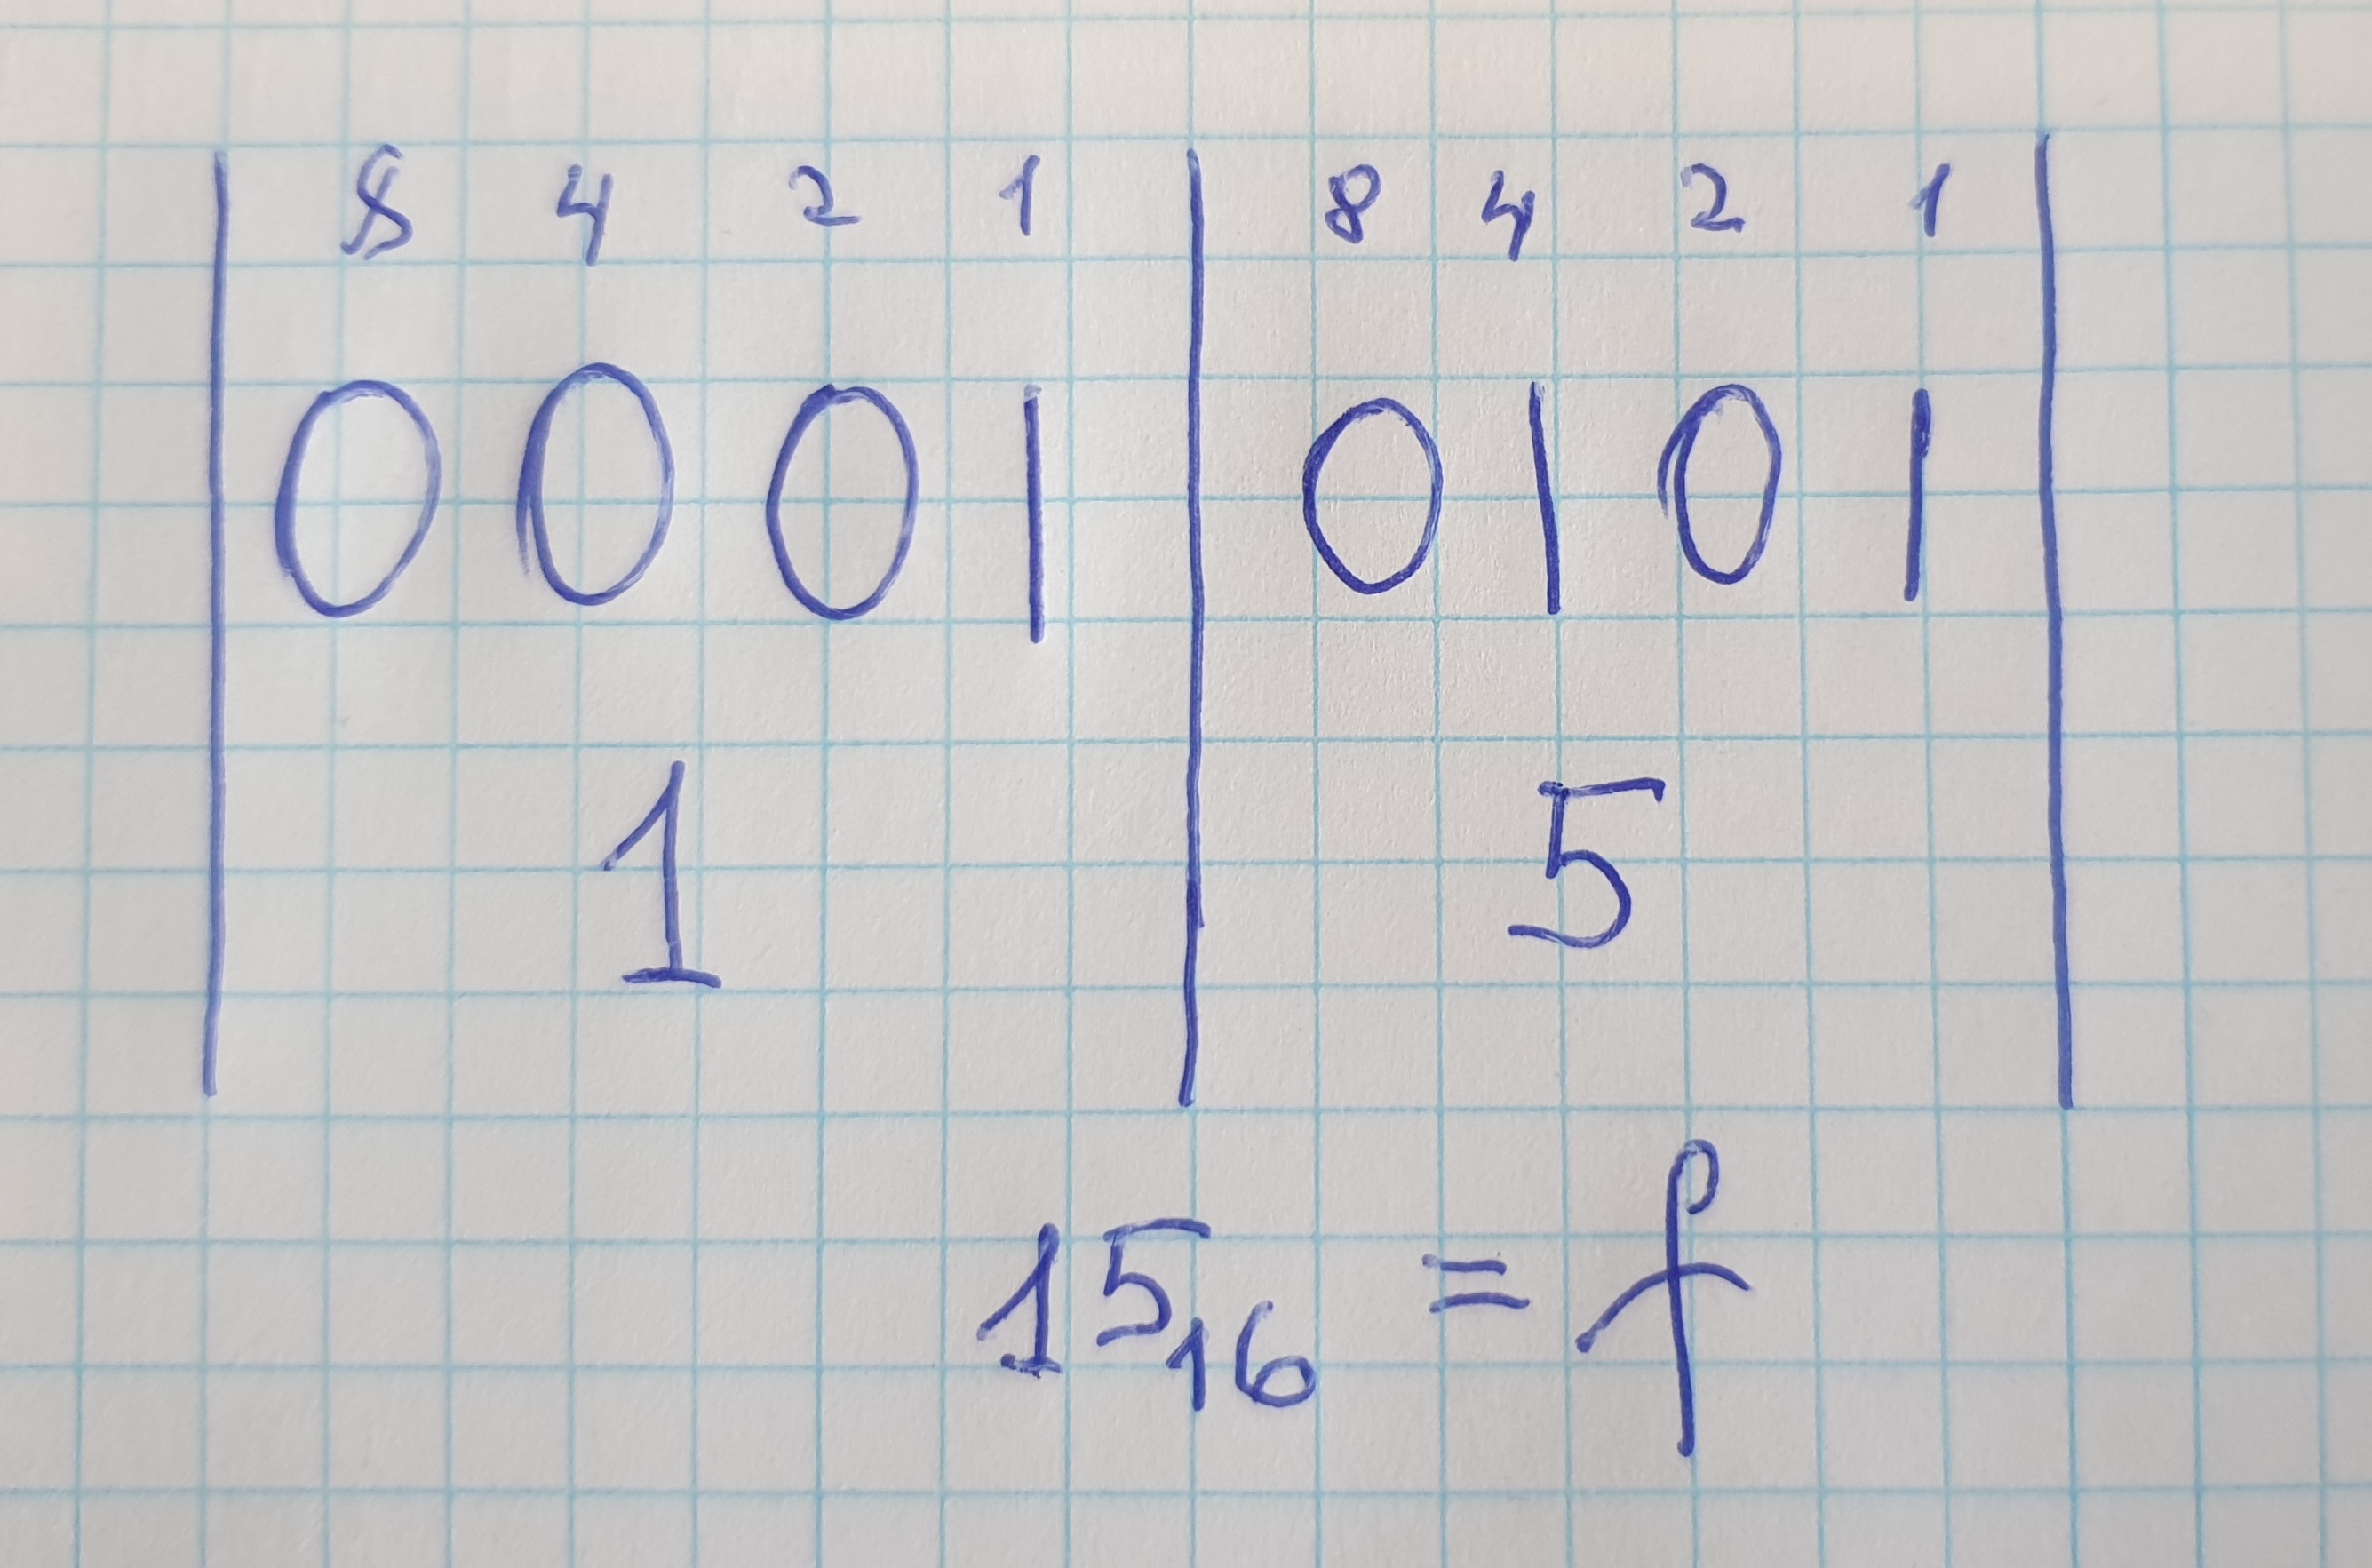 8 4 2 1 | 8 4 2 1
0 0 0 1 | 0 1 0 1
1 | 5
15₁₆ = f